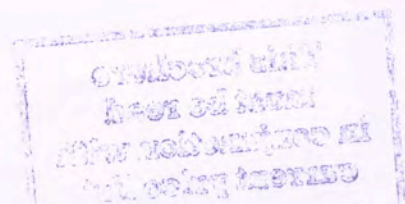 This brochure
must be read
in conjunction with
current price list